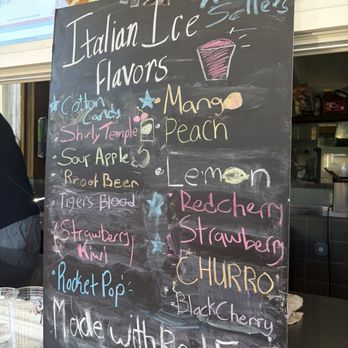 Sellers
Italian Ice
Flavors
Cotton
Candy
Shirly Temple
Sour Apple
Root Beer
Tigers Blood
Strawberry
Kiwi
Rocket Pop
Mango
Peach
Lemon
Red cherry
Strawberry
CHURRO
Black Cherry
Made with